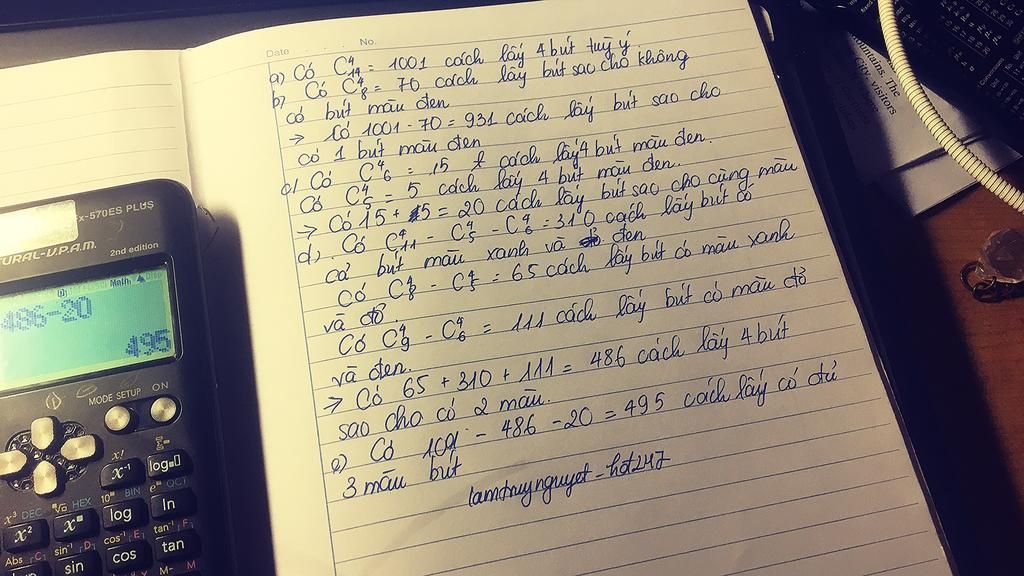 Date No.
a) Có C⁴₁₄ = 1001 cách lấy 4 bút tuỳ ý
b) Có C⁴₈ = 70 cách lấy bút sao cho không
có bút màu đen
→ Có 1001 - 70 = 931 cách lấy bút sao cho
có 1 bút màu đen
c) Có C⁴₆ = 15 cách lấy 4 bút màu đen.
Có C⁴₅ = 5 cách lấy 4 bút màu đen.
→ Có 15 + 5 = 20 cách lấy bút sao cho cùng màu
d). Có C⁴₁₁ - C⁴₅ - C⁴₆ = 310 cách lấy bút có
cả bút màu xanh và đen
Có C⁴₈ - C⁴₅ = 65 cách lấy bút có màu xanh
và đỏ.
Có C⁴₉ - C⁴₆ = 111 cách lấy bút có màu đỏ
và đen.
→ Có 65 + 310 + 111 = 486 cách lấy 4 bút
sao cho có 2 màu.
e) Có 1001 - 486 - 20 = 495 cách lấy có đủ
3 màu bút
lamthuynguyet - hd247
fx-570ES PLUS
NATURAL-V.P.A.M.
2nd edition
Math
486-20
495
MODE SETUP ON
x! Σ
x⁻¹ log
x³ DEC ˣ√ HEX 10ˣ BIN eˣ OCT
x² xⁿ log ln
Abs sin⁻¹ D cos⁻¹ E tan⁻¹ F
sin cos tan
M- M
ountains. The
City. visitors